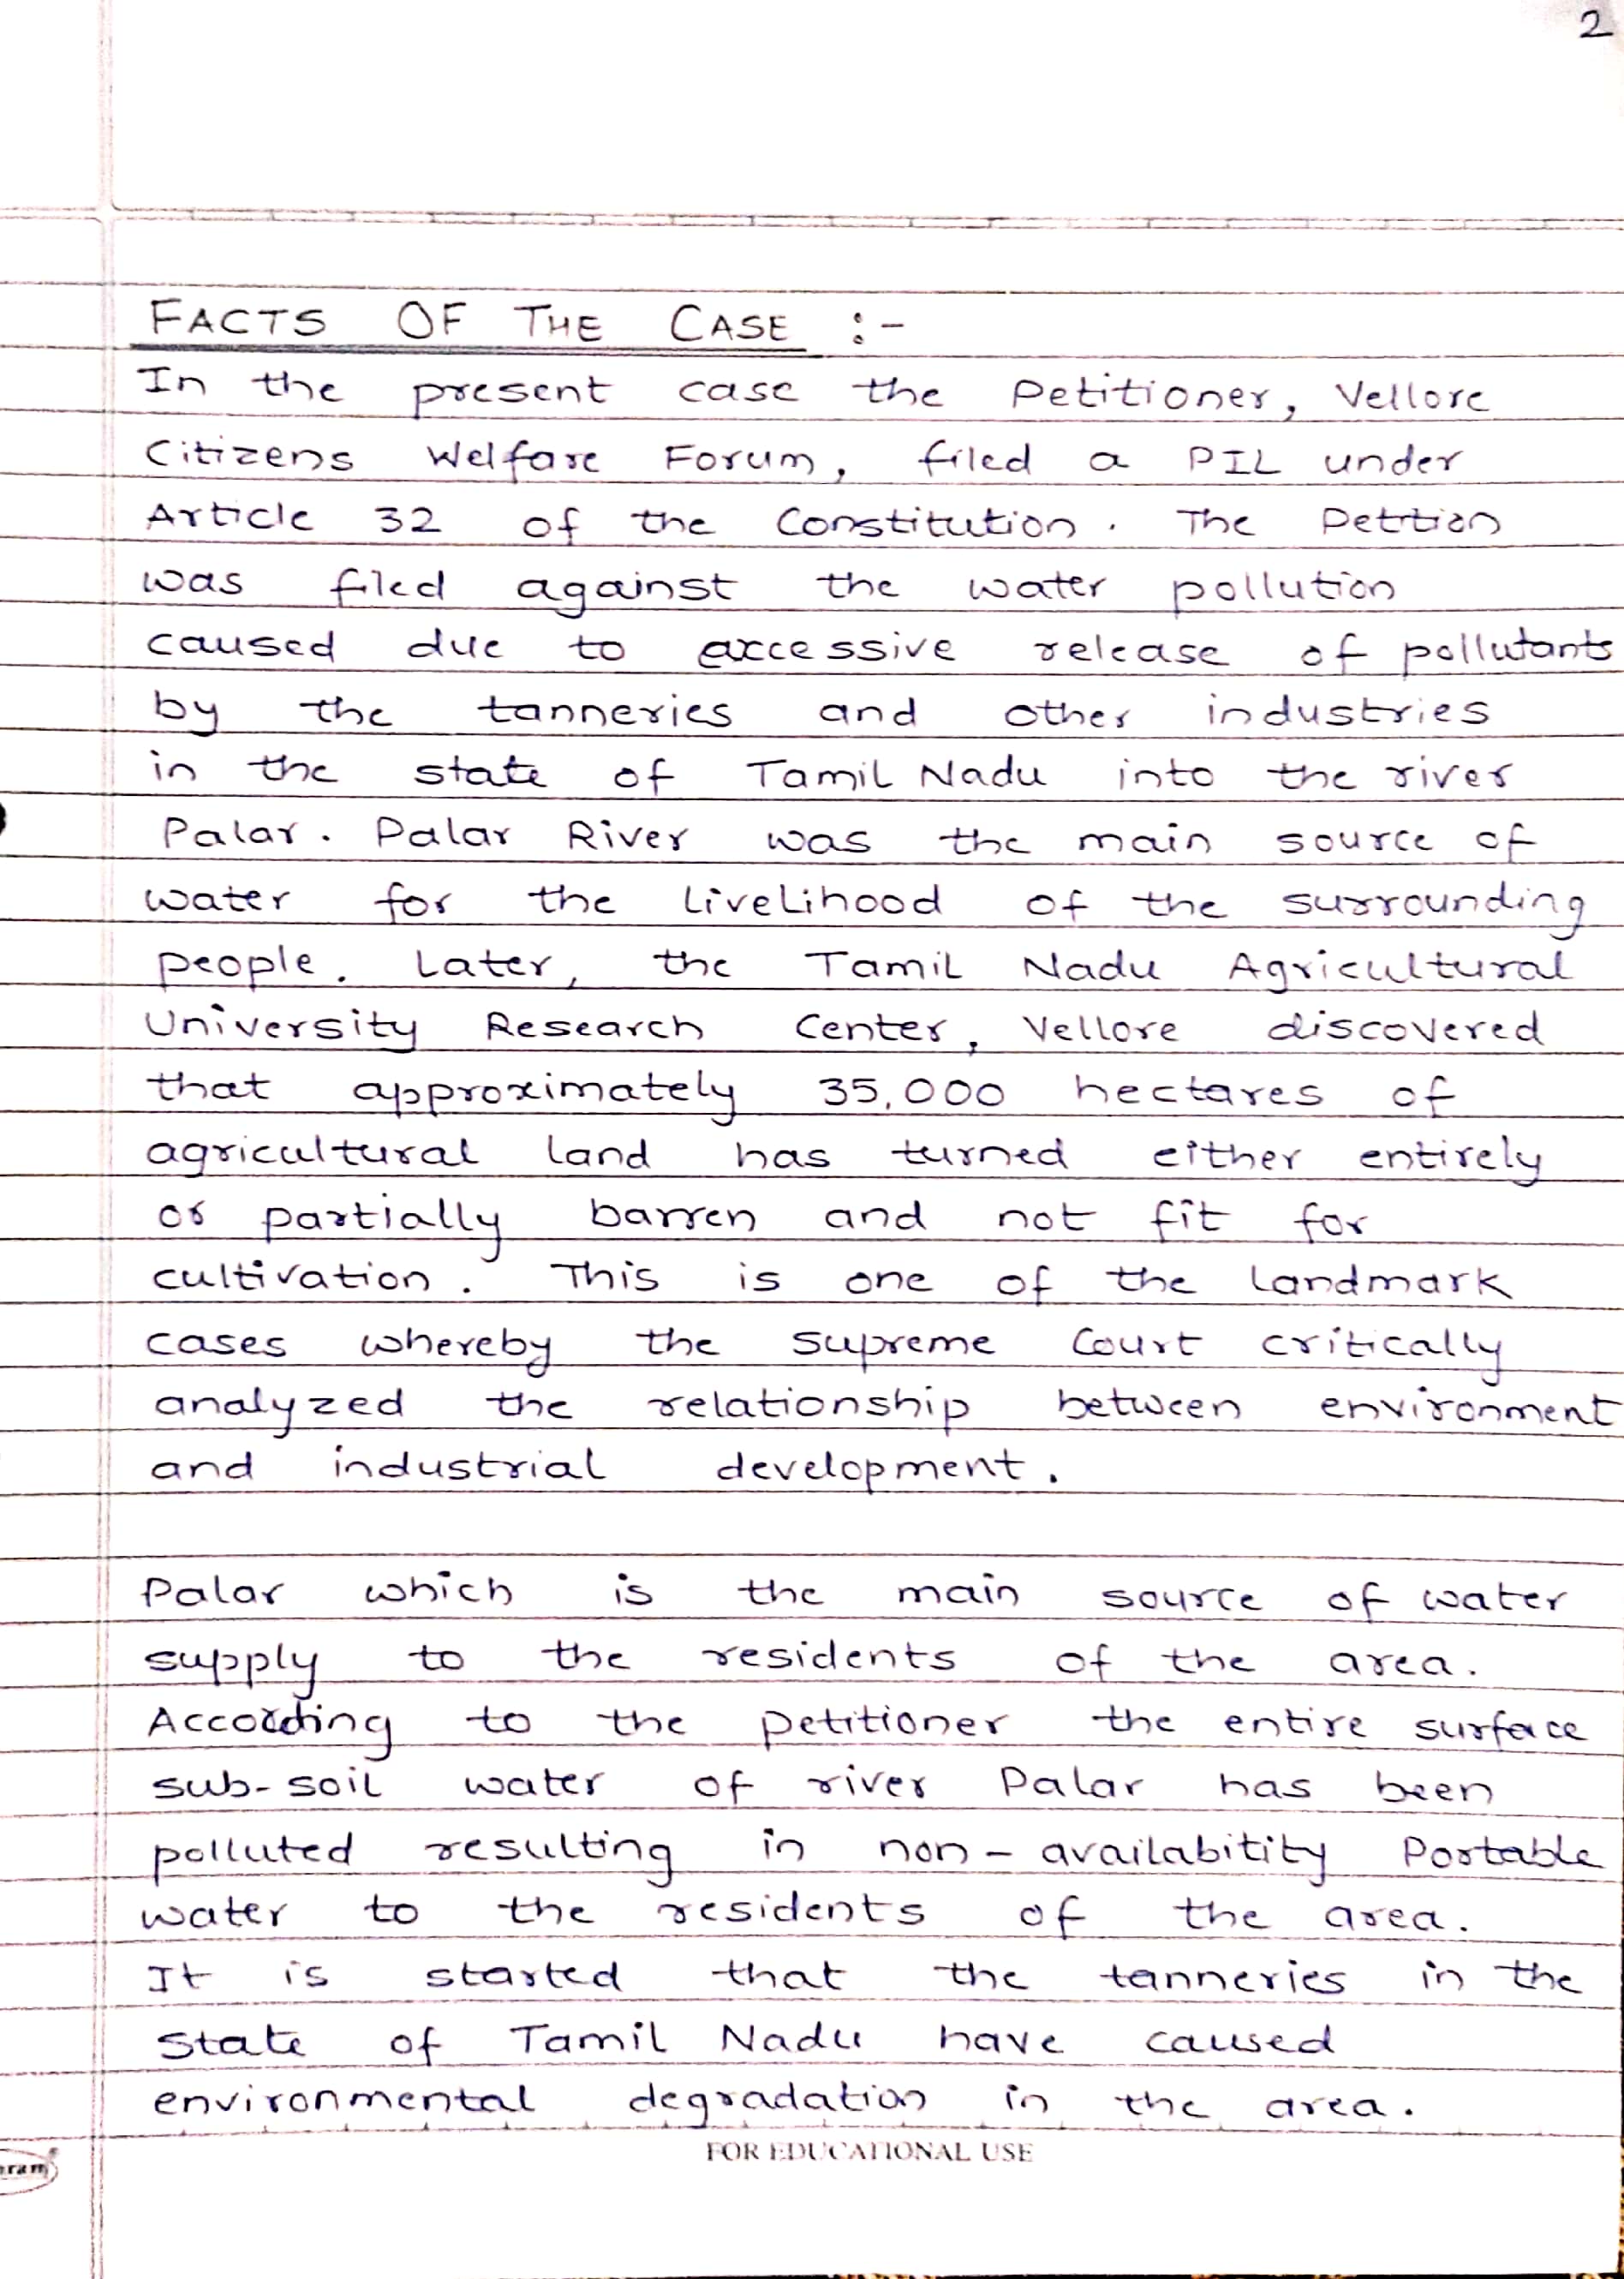 2
FACTS OF THE CASE :-
In the present case the Petitioner, Vellore
Citizens Welfare Forum, filed a PIL under
Article 32 of the Constitution. The Pettion
was filed against the water pollution
caused due to excessive release of pollutants
by the tanneries and other industries
in the state of Tamil Nadu into the river
Palar. Palar River was the main source of
water for the livelihood of the surrounding
people. Later, the Tamil Nadu Agricultural
University Research Center, Vellore discovered
that approximately 35,000 hectares of
agricultural land has turned either entirely
or partially barren and not fit for
cultivation. This is one of the landmark
cases whereby the supreme Court critically
analyzed the relationship between environment
and industrial development.
Palar which is the main source of water
supply to the residents of the area.
According to the petitioner the entire surface
sub-soil water of river Palar has been
polluted resulting in non-availabitity Portable
water to the residents of the area.
It is started that the tanneries in the
State of Tamil Nadu have caused
environmental degradation in the area.
FOR EDUCATIONAL USE
ram